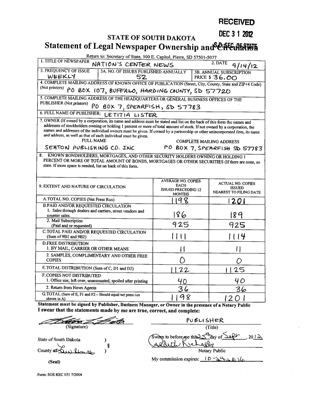 RECEIVED
DEC 31 2012
STATE OF SOUTH DAKOTA
Statement of Legal Newspaper Ownership and
Return to: Secretary of State, 500 E. Capitol, Pierre, SD 57501-5077
1. TITLE OF NEWSPAPER NATION'S CENTER NEWS 2. DATE 9/14/12
3. FREQUENCY OF ISSUE WEEKLY
3A. NO. OF ISSUES PUBLISHED ANNUALLY 52
3B. ANNUAL SUBSCRIPTION PRICE $ 36.00
4. COMPLETE MAILING ADDRESS OF KNOWN OFFICE OF PUBLICATION (Street, City, County, State and ZIP+4 Code)
(Not printers) PO BOX 107, BUFFALO, HARDING COUNTY, SD 57720
5. COMPLETE MAILING ADDRESS OF THE HEADQUARTERS OR GENERAL BUSINESS OFFICES OF THE
PUBLISHER (Not printers) PO BOX 7, SPEARFISH, SD 57783
6. FULL NAME OF PUBLISHER: LETITIA LISTER
7. OWNER (If owned by a corporation, its name and address must be stated and list on the back of this form the names and
addresses of stockholders owning or holding 1 percent or more of total amount of stock. If not owned by a corporation, the
names and addresses of the individual owners must be given. If owned by a partnership or other unincorporated firm, its name
and address, as well as that of each individual must be given.
FULL NAME COMPLETE MAILING ADDRESS
SEATON PUBLISHING CO. INC PO BOX 7, SPEARFISH SD 57783
8. KNOWN BONDHOLDERS, MORTGAGES, AND OTHER SECURITY HOLDERS OWNING OR HOLDING 1
PERCENT OR MORE OF TOTAL AMOUNT OF BONDS, MORTGAGES OR OTHER SECURITIES (If there are none, so
state. If more space is needed, list on back of this form.
9. EXTENT AND NATURE OF CIRCULATION
AVERAGE NO. COPIES
EACH
ISSUES PRECEDING 12
MONTHS
ACTUAL NO. COPIES
ISSUED
NEAREST TO FILING DATE
A. TOTAL NO. COPIES (Net Press Run) 1198 1201
B. PAID AND/OR REQUESTED CIRCULATION
1. Sales through dealers and carriers, street vendors and
counter sales 186 189
2. Mail Subscription
(Paid and or requested) 925 925
C. TOTAL PAID AND/OR REQUESTED CIRCULATION
(Sum of 9B1 and 9B2) 1111 1114
D. FREE DISTRIBUTION
1. BY MAIL, CARRIER OR OTHER MEANS 11 11
2. SAMPLES, COMPLIMENTARY AND OTHER FREE
COPIES 0 0
E. TOTAL DISTRIBUTION (Sum of C, D1 and D2) 1122 1125
F. COPIES NOT DISTRIBUTED
1. Office use, left over, unaccounted, spoiled after printing 40 40
2. Return from News Agents 36 36
G. TOTAL (Sum of E, F1 and F2 - Should equal net press run
shown in A) 1198 1201
Statement must be signed by Publisher, Business Manager, or Owner in the presence of a Notary Public
I swear that the statements made by me are true, correct, and complete:
PUBLISHER
(Signature) (Title)
State of South Dakota )
§
County of )
Sworn to before me this day of Sept 2012
Notary Public
(Seal)
My commission expires:
Form: SOS REC 051 7/2004